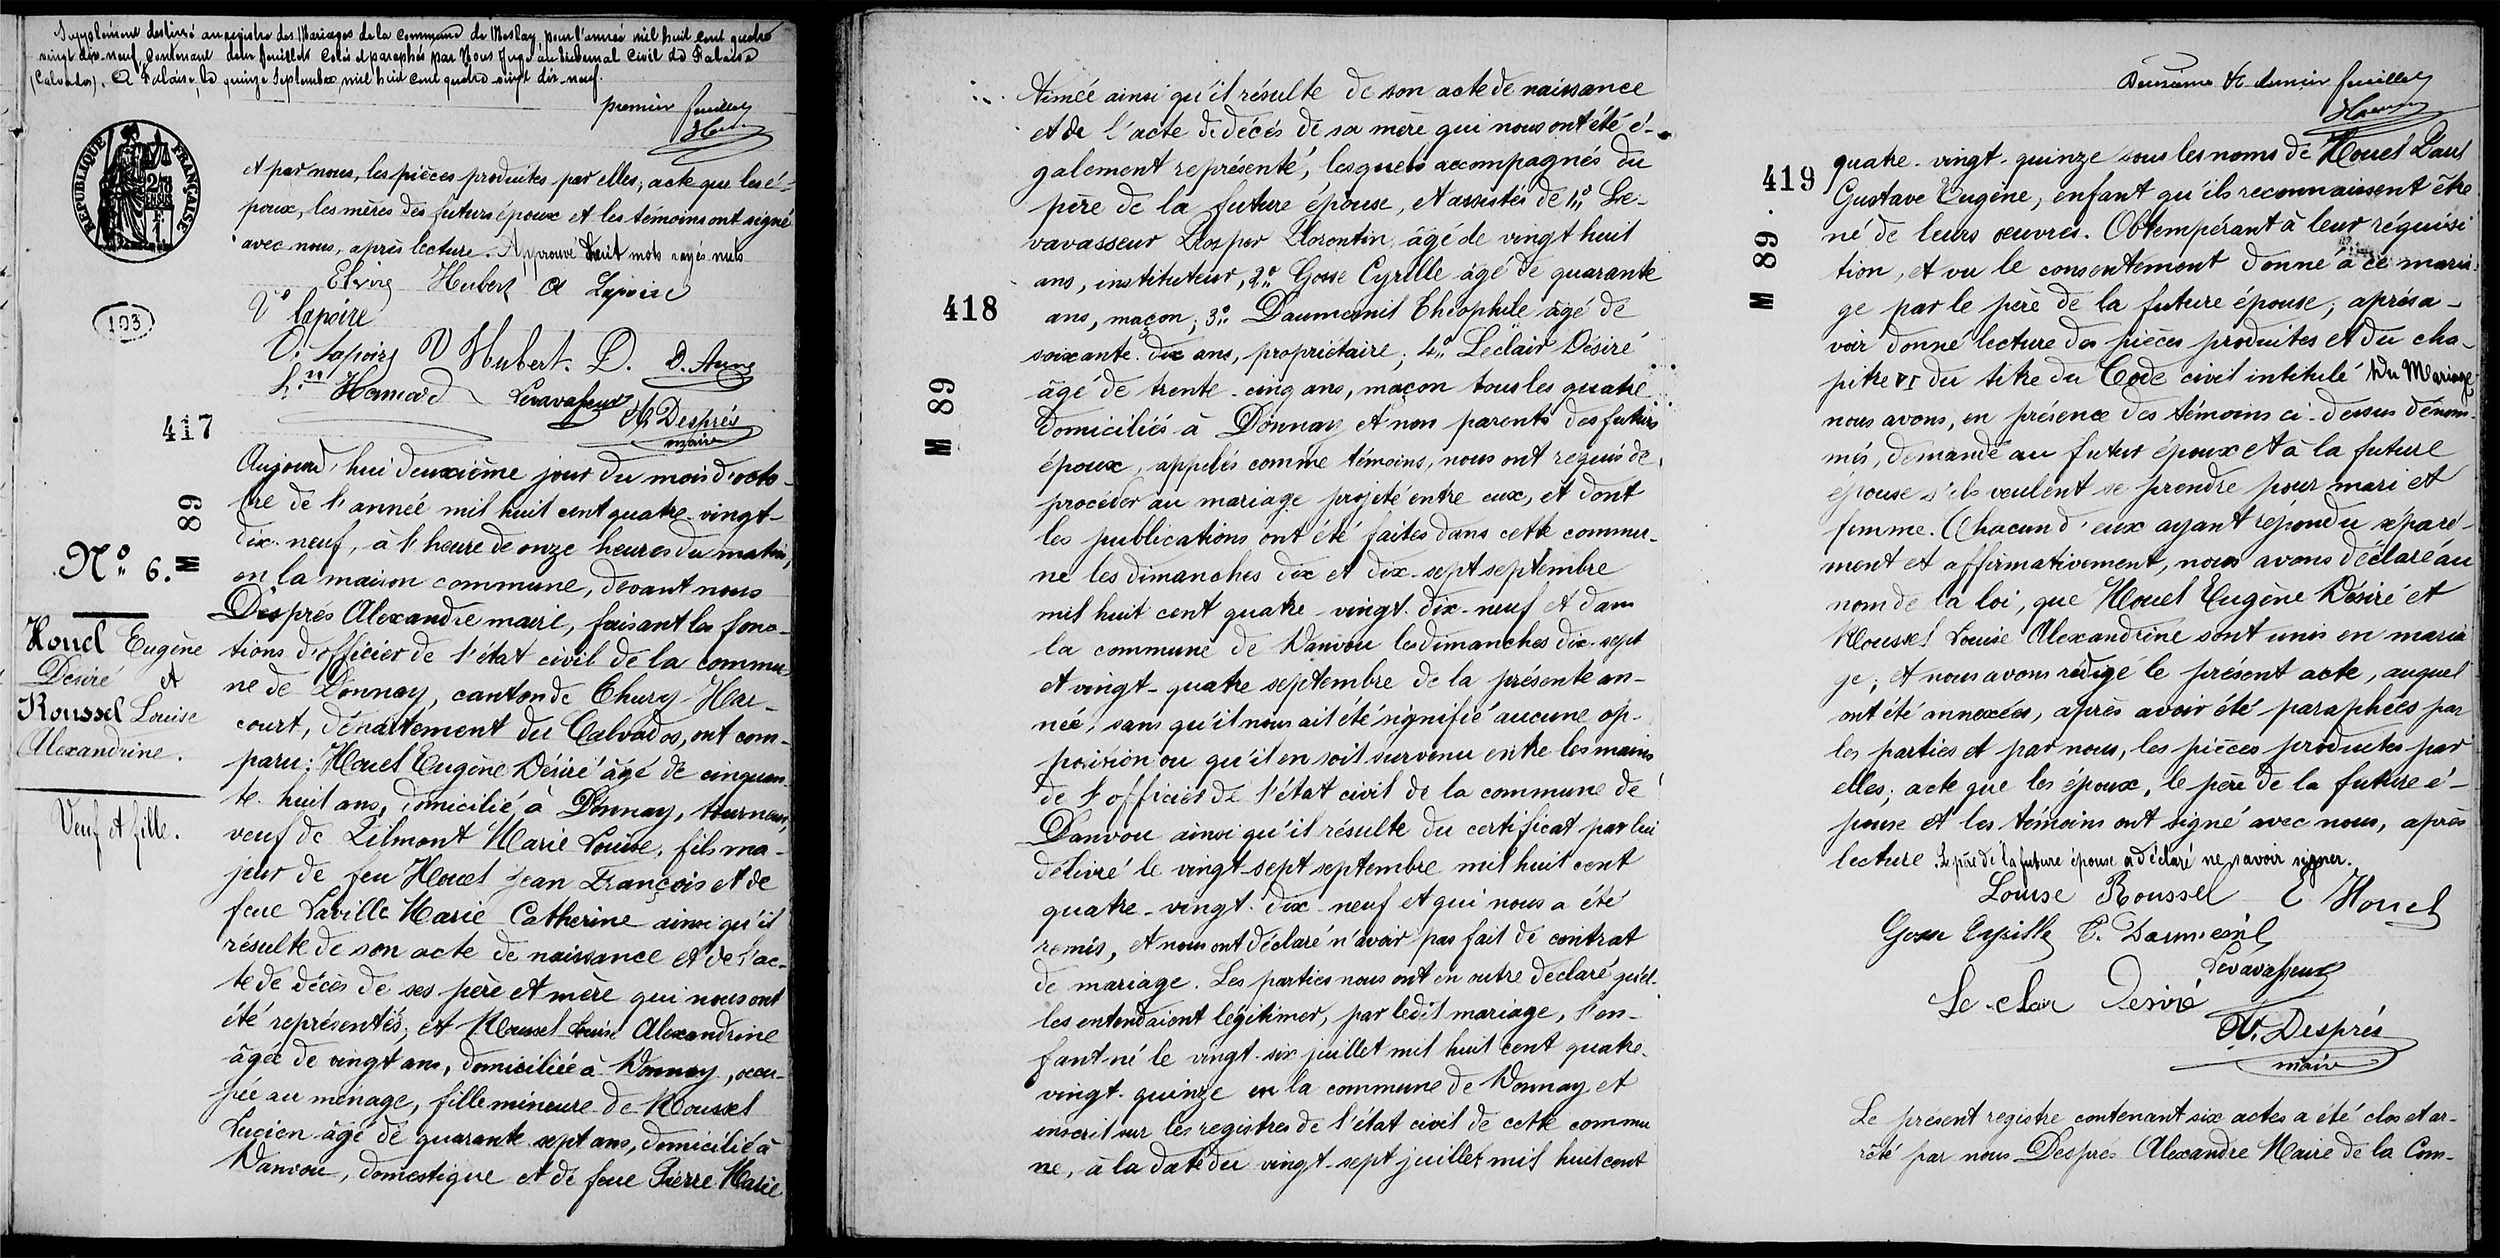 Supplément destiné au registre des Mariages de la Commune de Meslay pour l'année mil huit cent quatre
vingt dix-neuf, contenant deux feuillets cotés et paraphés par Nous Juge au tribunal Civil de Falaise
(Calvados). A Falaise, le quinze Septembre mil huit cent quatre-vingt dix-neuf.
premier feuillet
RÉPUBLIQUE FRANÇAISE
et par nous, les pièces produites par elles; acte que les é-
poux, les mères des futurs époux et les témoins ont signé
avec nous, après lecture. Approuvé huit mots rayés nuls
Elvire Hubert A Lapoire
Ve Lapoire
V. Lapoire V Hubert. D. D. Anne
Levavasseur
A. Després
maire
103
417
M 89
No 6.
Houel Eugène
Désiré et
Roussel Louise
Alexandrine.
Veuf et fille.
Aujourd'hui deuxième jour du mois d'octo-
bre de l'année mil huit cent quatre-vingt-
dix-neuf, à l'heure de onze heures du matin,
en la maison commune, devant nous
Després Alexandre maire, faisant les fonc-
tions d'officier de l'état civil de la commu-
ne de Donnay, canton de Thury-Har-
court, département du Calvados, ont com-
paru: Houel Eugène Désiré âgé de cinquan-
te-huit ans, domicilié à Donnay, tourneur,
veuf de Lilmont Marie Louise, fils ma-
jeur de feu Houel Jean François et de
feue Laville Marie Catherine ainsi qu'il
résulte de son acte de naissance et de l'ac-
te de décès de ses père et mère qui nous ont
été représentés; et Roussel Louise Alexandrine
âgée de vingt ans, domiciliée à Donnay, occu-
pée au ménage, fille mineure de Roussel
Lucien âgé de quarante-sept ans, domicilié à
Danvou, domestique et de feue Pierre Marie
418
M 89
Aimée ainsi qu'il résulte de son acte de naissance
et de l'acte de décès de sa mère qui nous ont été é-
galement représenté, lesquels accompagnés du
père de la future épouse, et assistés de 1o Le-
vavasseur Prosper Florentin âgé de vingt huit
ans, instituteur, 2o Gosse Cyrille âgé de quarante
ans, maçon; 3o Daumesnil Théophile âgé de
soixante-dix ans, propriétaire; 4o Leclair Désiré
âgé de trente-cinq ans, maçon tous les quatre
domiciliés à Donnay et non parents des futurs
époux, appelés comme témoins, nous ont requis de
procéder au mariage projeté entre eux, et dont
les publications ont été faites dans cette commu-
ne les dimanches dix et dix-sept septembre
mil huit cent quatre-vingt-dix-neuf et dans
la commune de Danvou les dimanches dix-sept
et vingt-quatre septembre de la présente an-
née, sans qu'il nous ait été signifié aucune op-
position ou qu'il en soit survenu entre les mains
de l'officier de l'état civil de la commune de
Danvou ainsi qu'il résulte du certificat par lui
délivré le vingt-sept septembre mil huit cent
quatre-vingt-dix-neuf et qui nous a été
remis, et nous ont déclaré n'avoir pas fait de contrat
de mariage. Les parties nous ont en outre déclaré qu'el-
les entendaient légitimer, par ledit mariage, l'en-
fant né le vingt-six juillet mil huit cent quatre-
vingt-quinze en la commune de Donnay et
inscrit sur les registres de l'état civil de cette commu
ne, à la date du vingt-sept juillet mil huit cent
Deuxième et dernier feuillet
419
M 89.
quatre-vingt-quinze sous les noms de Houel Paul
Gustave Eugène, enfant qu'ils reconnaissent être
né de leurs oeuvres. Obtempérant à leur réquisi
tion, et vu le consentement donné à ce maria-
ge par le père de la future épouse; après a-
voir donné lecture des pièces produites et du cha-
pitre VI du titre du Code civil intitulé Du Mariage
nous avons, en présence des témoins ci-dessus dénom-
més, demandé au futur époux et à la future
épouse s'ils veulent se prendre pour mari et
femme. Chacun d'eux ayant répondu séparé-
ment et affirmativement, nous avons déclaré au
nom de la loi, que Houel Eugène Désiré et
Roussel Louise Alexandrine sont unis en maria
ge; et nous avons rédigé le présent acte, auquel
ont été annexées, après avoir été paraphées par
les parties et par nous, les pièces produites par
elles; acte que les époux, le père de la future é-
pouse et les témoins ont signé avec nous, après
lecture. Le père de la future épouse a déclaré ne savoir signer.
Louise Roussel E Houel
Gosse Cyrille T. Daumesnil
Levavasseur
Le clair Desiré
A. Després
maire
Le présent registre contenant six actes a été clos et ar-
rêté par nous Després Alexandre Maire de la Com-